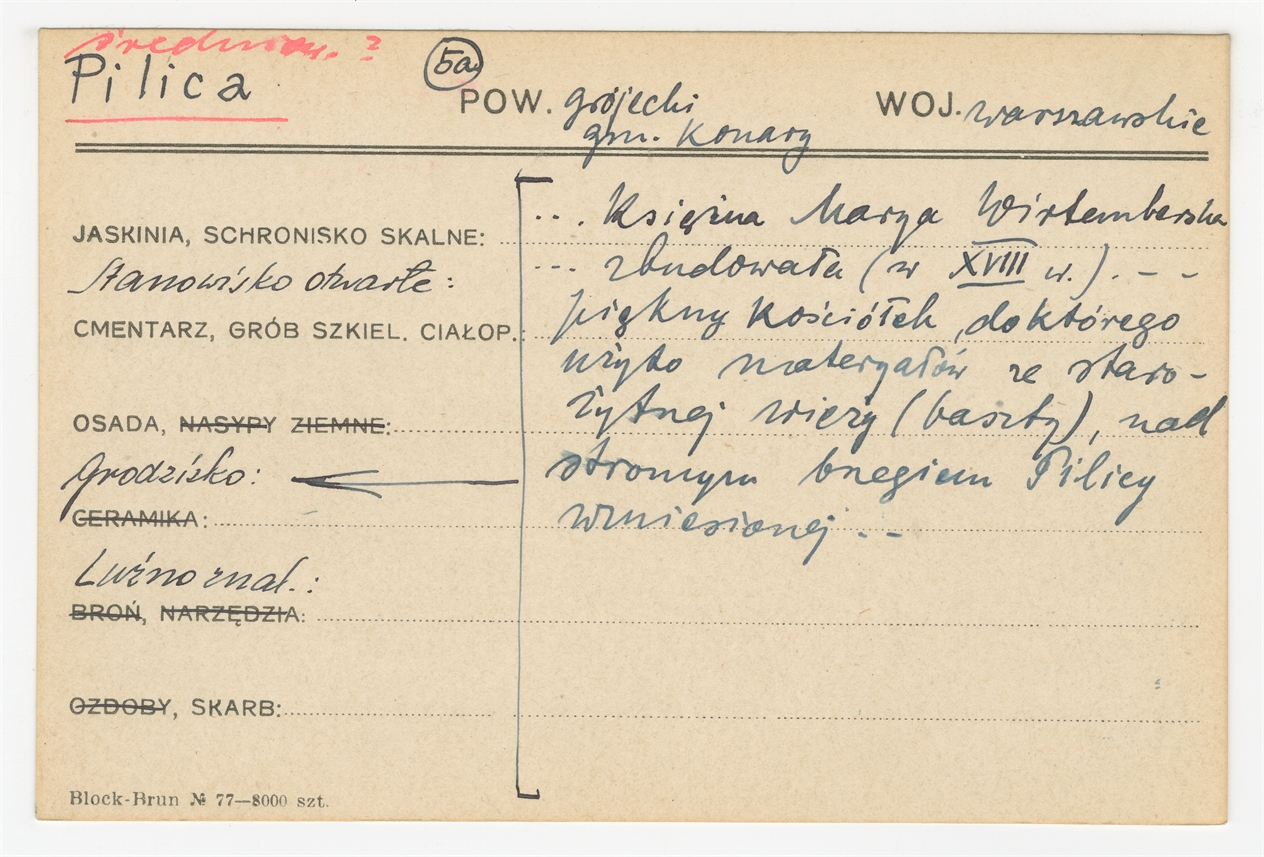 średniow. ?
Pilica
5a
POW. grójecki
gm. Konary
WOJ. warszawskie
... Księżna Marya Wirtemberska
JASKINIA, SCHRONISKO SKALNE:
... zbudowała (w XVIII w.). - -
Stanowisko otwarte:
piękny kościółek, do którego
CMENTARZ, GRÓB SZKIEL. CIAŁOP.:
użyto materyałów ze staro-
żytnej wieży (baszty), nad
OSADA, NASYPY ZIEMNE:
stromym brzegiem Pilicy
Grodzisko:
wzniesionej . --
CERAMIKA:
Luźno znal.:
BROŃ, NARZĘDZIA:
OZDOBY, SKARB:
Block-Brun № 77—8000 szt.